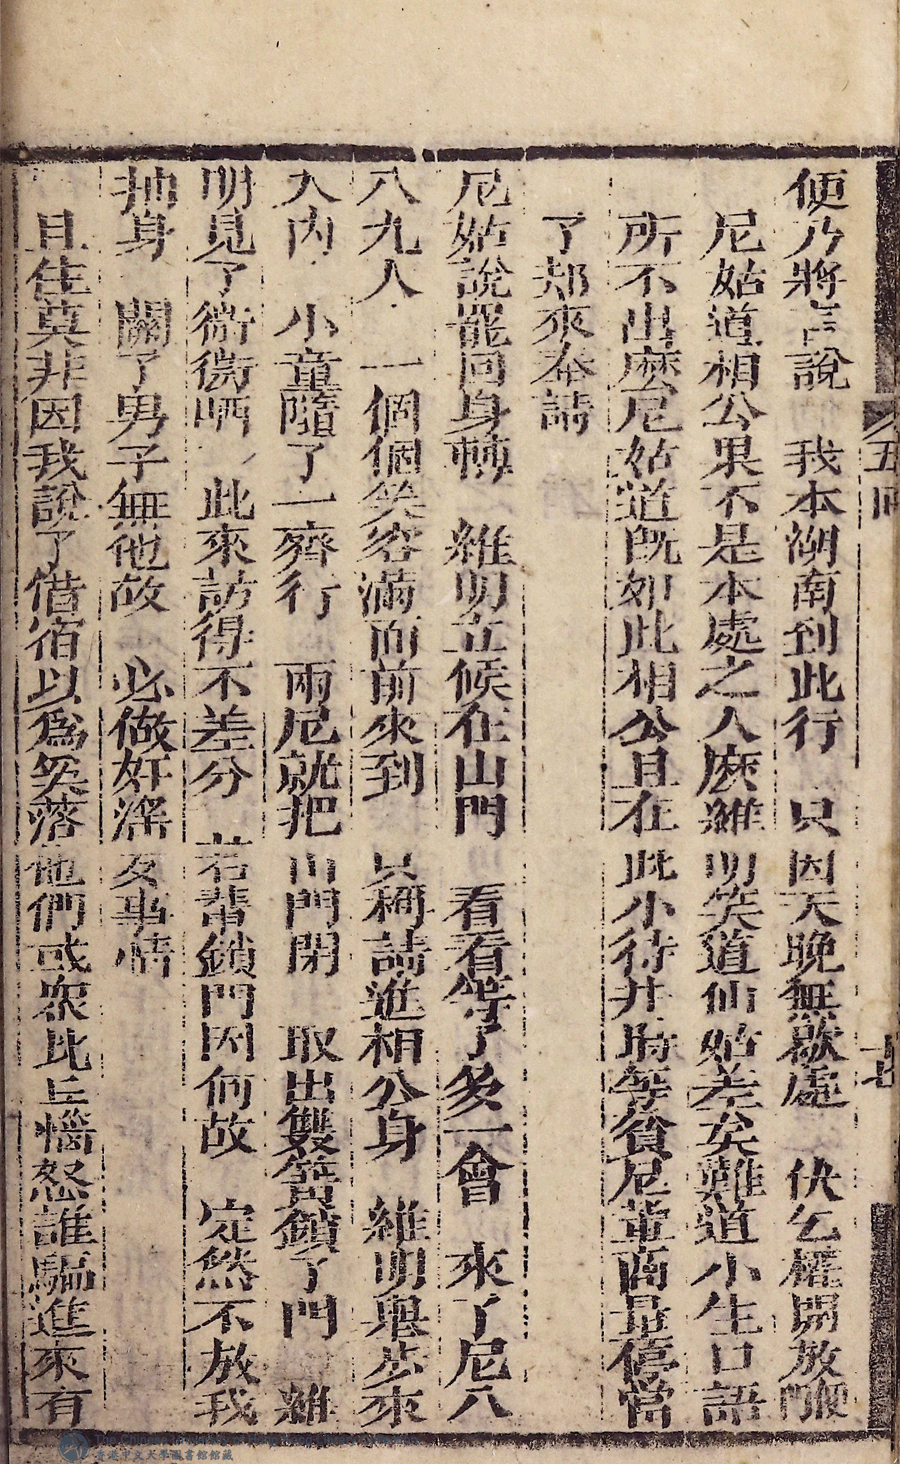 便乃將言說　我本湖南到此行　只因天晚無歇處　伏乞權開放
尼姑道相公果不是本處之人麽維明笑道仙姑差矣難道小生口語
所不出麽尼姑道既如此相公且在此小待片時等貧尼輩商量停當
了却來奉請
尼姑說罷回身轉　維明立候在山門　看看等了多一會　來了尼八
八九人　一個個笑容滿面前來到　只稱請進相公身　維明舉步來
入內　小童隨了一齊行　兩尼就把山門閉　取出雙簧鎖了門　維
明見了微微哂　此來訪得不差分　若輩鎖門因何故　定然不放我
抽身　關了男子無他故　必做奸滛女事情
且住莫非因我說了借宿以爲笑落他們或衆比丘惱怒誰騙進來有
五回
十七
香港中文大學圖書館館藏